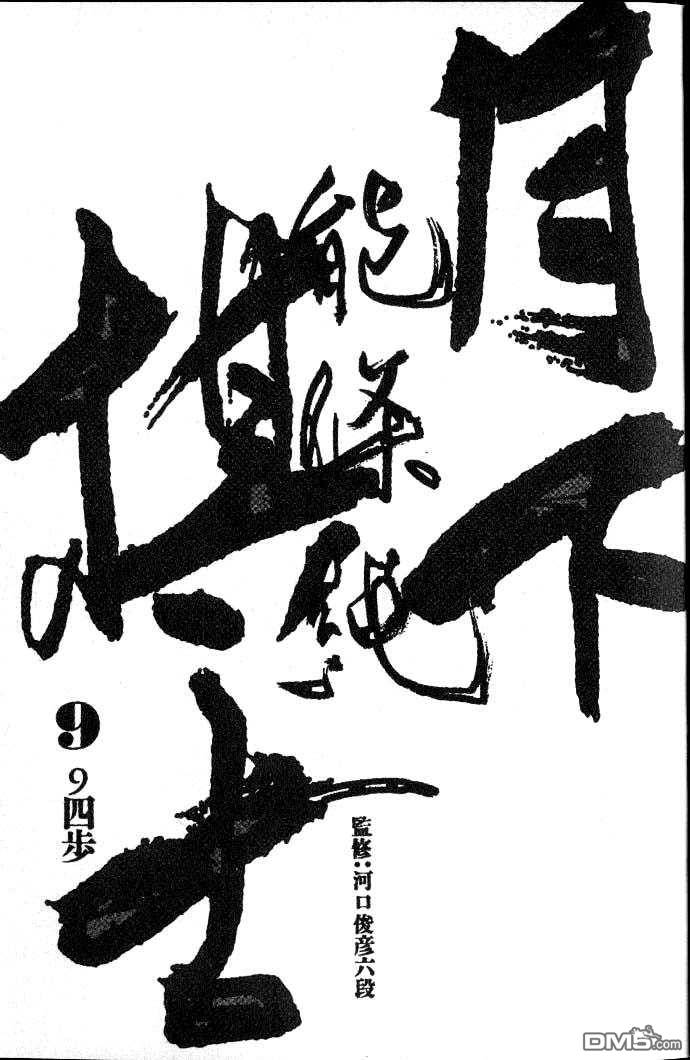 月下
棋士
能條純一
9
9四歩
監修:河口俊彦六段
DM5.com